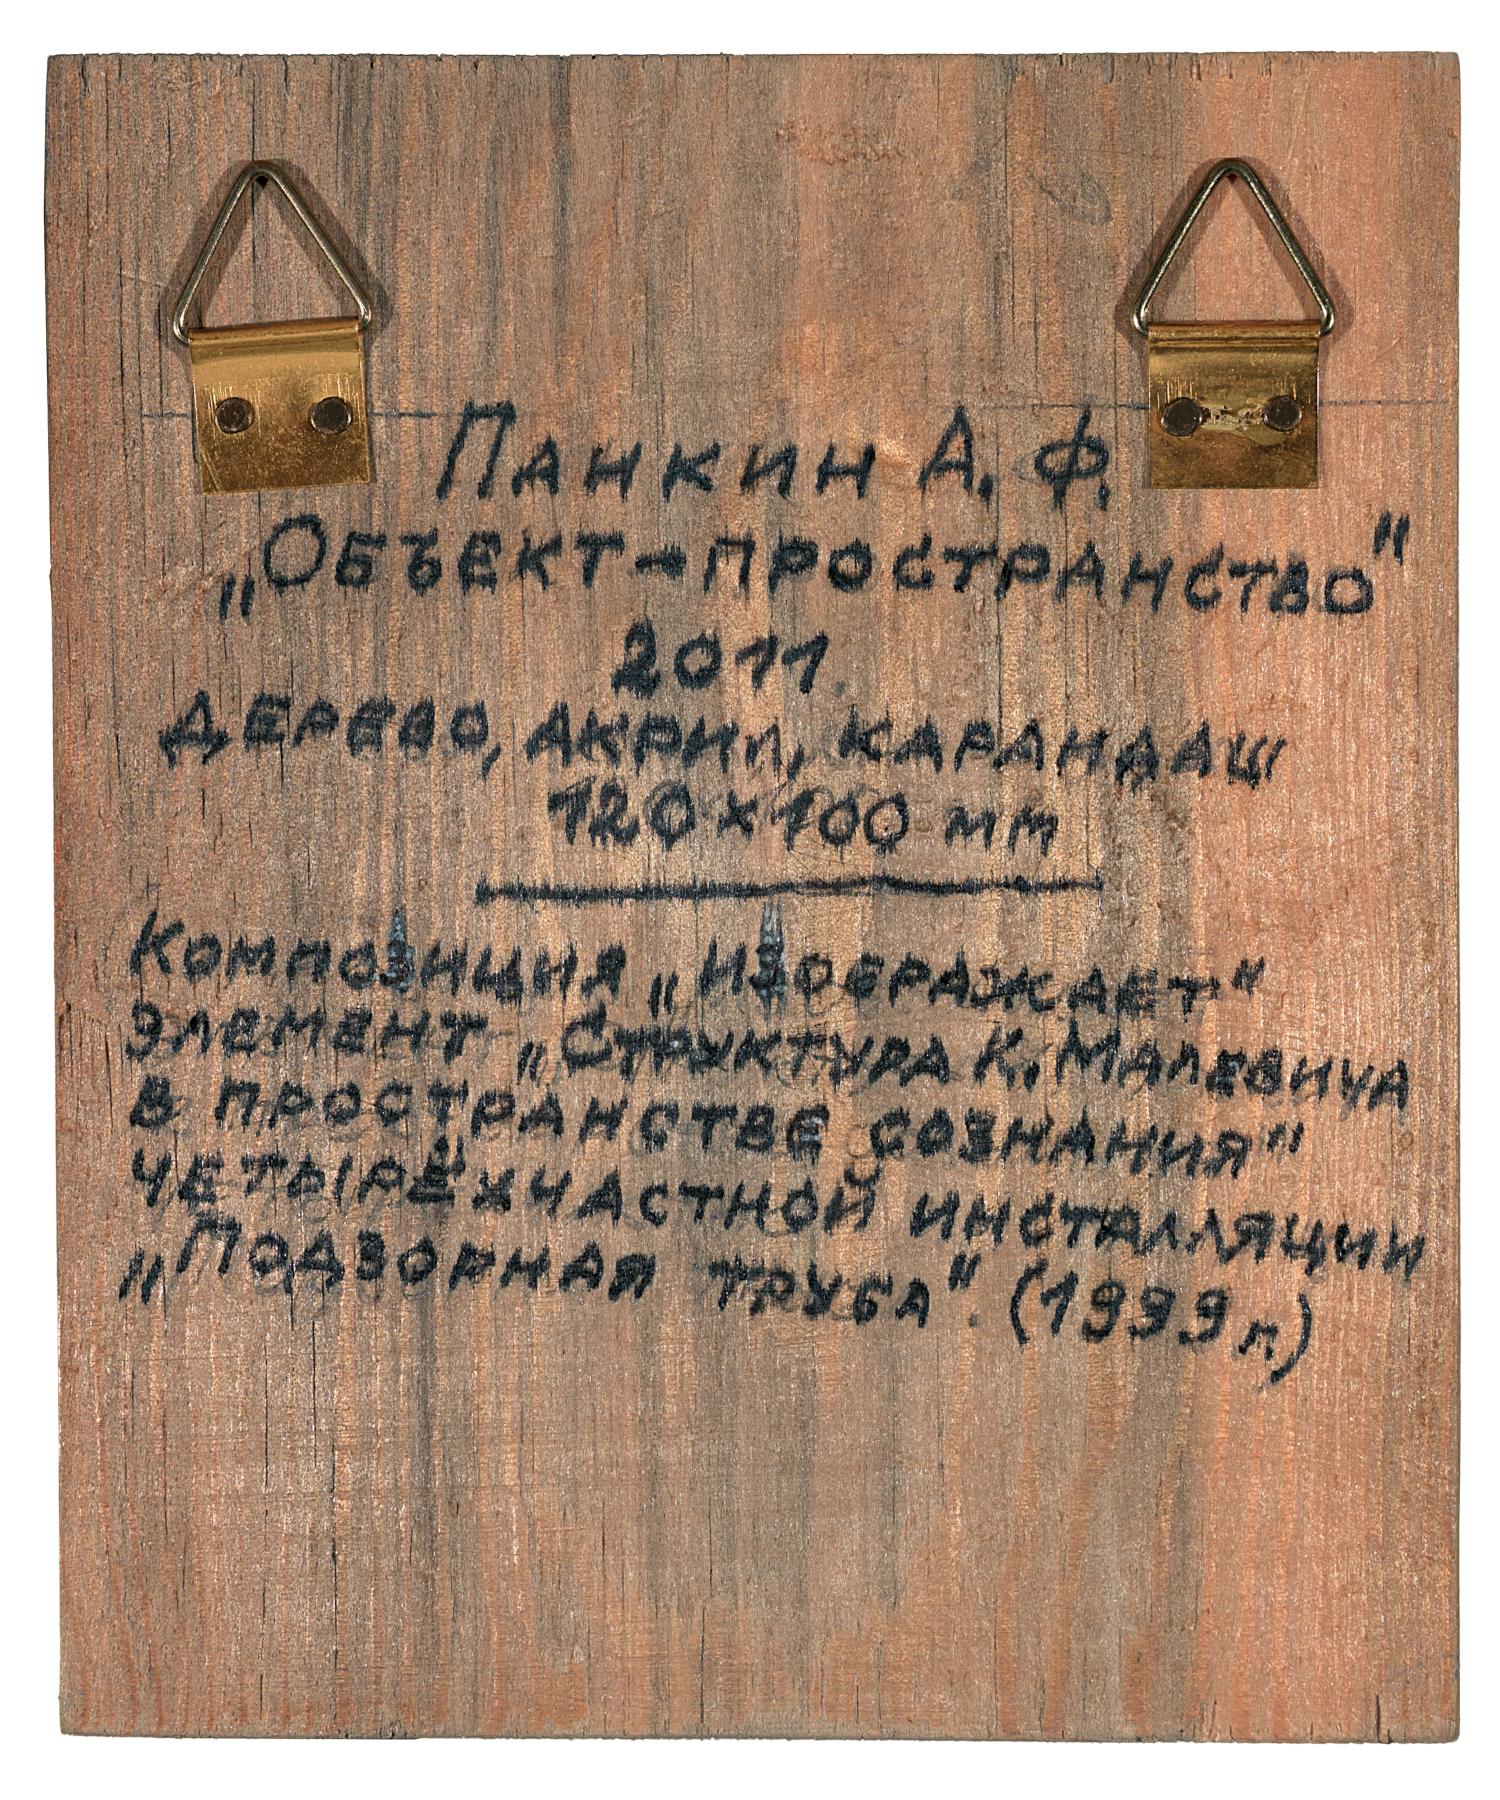 Панкин А. Ф.
„Объект-пространство"
2011
Дерево, акрил, карандаш
120 х 100 мм
Композиция „изображает"
элемент „Структура К. Малевича
в пространстве сознания"
четырёхчастной инсталляции
„Подзорная труба". (1999 г.)